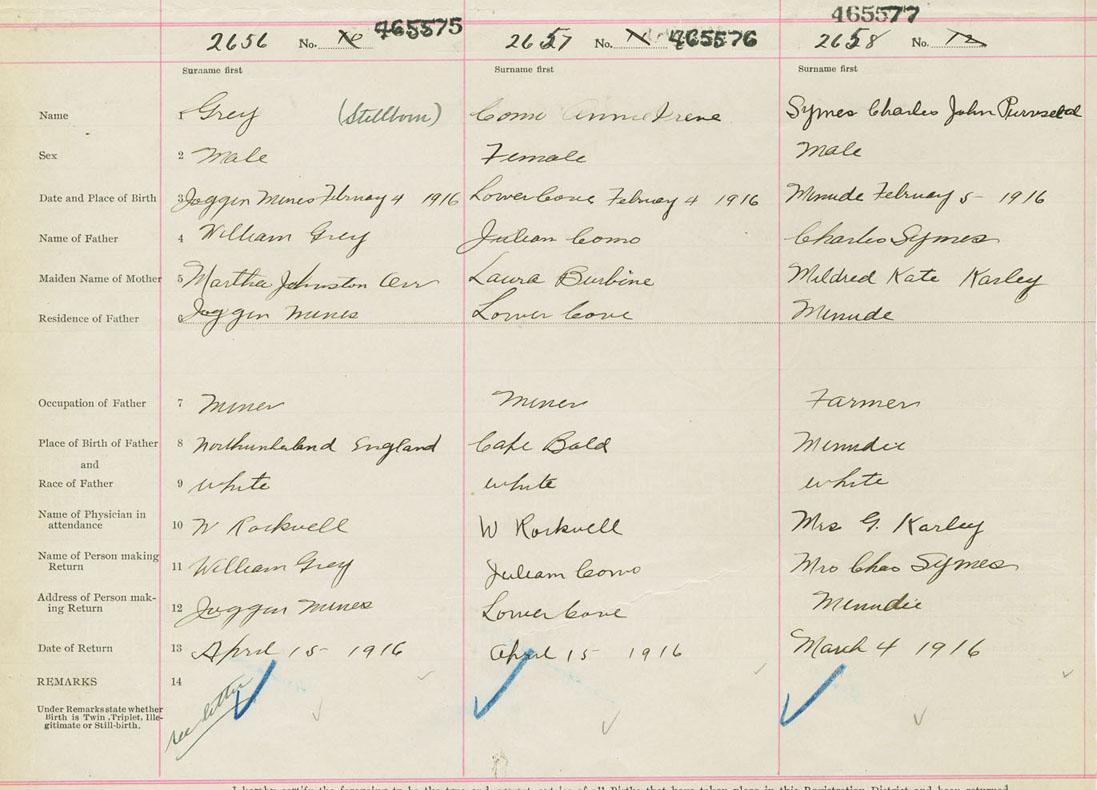 465575 465577
2656 No. 2657 No. 465576 2658 No. 12
Surname first Surname first Surname first
Name 1 Grey (Stillborn) Como Annie Irene Symes Charles John
Sex 2 Male Female Male
Date and Place of Birth 3 Joggin Mines Febrary 4 1916 Lower Cove February 4 1916 Minude February 5 - 1916
Name of Father 4 William Grey Julian Como Charles Symes
Maiden Name of Mother 5 Martha Johnston Orr Laura Burbine Mildred Kate Karley
Residence of Father 6 Joggin Mines Lower Cove Minude
Occupation of Father 7 Miner Miner Farmer
Place of Birth of Father 8 Northumberland England Cape Bald Minudie
and
Race of Father 9 white white white
Name of Physician in
attendance 10 W Rockwell W Rockwell Mrs G. Karley
Name of Person making
Return 11 William Grey Julian Como Mrs Chas Symes
Address of Person mak-
ing Return 12 Joggin Mines Lower Cove Minudie
Date of Return 13 April 15 - 1916 April 15 1916 March 4 1916
REMARKS 14
see letter
Under Remarks state whether
Birth is Twin, Triplet, Ille-
gitimate or Still-birth.
I hereby certify the foregoing to be the true and correct entries of all Births that have taken place in this Registration District and been returned